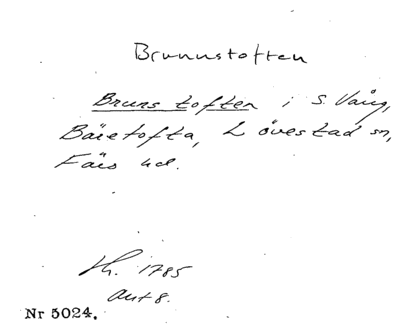 Brunnstoften
Bruns toften i S. Vång,
Bäretofta, Lövestad sn,
Färs hd.
Lh. 1785
akt 8.
Nr 5024.